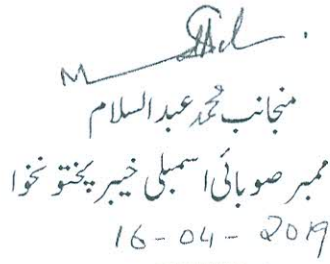 منجانب محمد عبدالسلام
ممبر صوبائی اسمبلی خیبر پختونخوا
16-04-2019